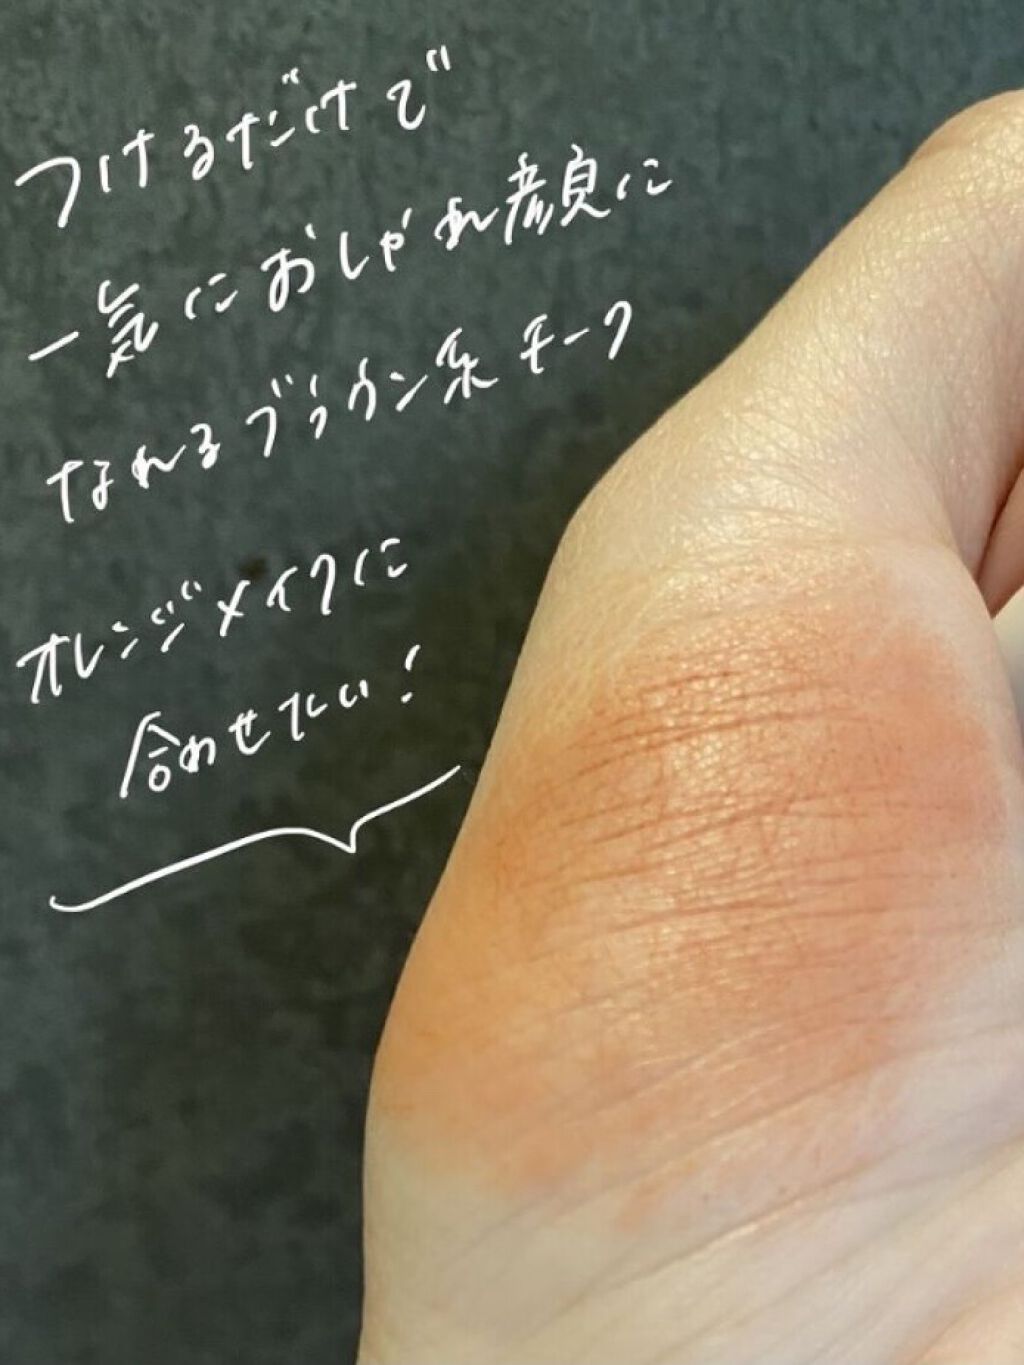 つけるだけで
一気におしゃれ顔に
なれるブラウン系チーク
オレンジメイクに
合わせたい!